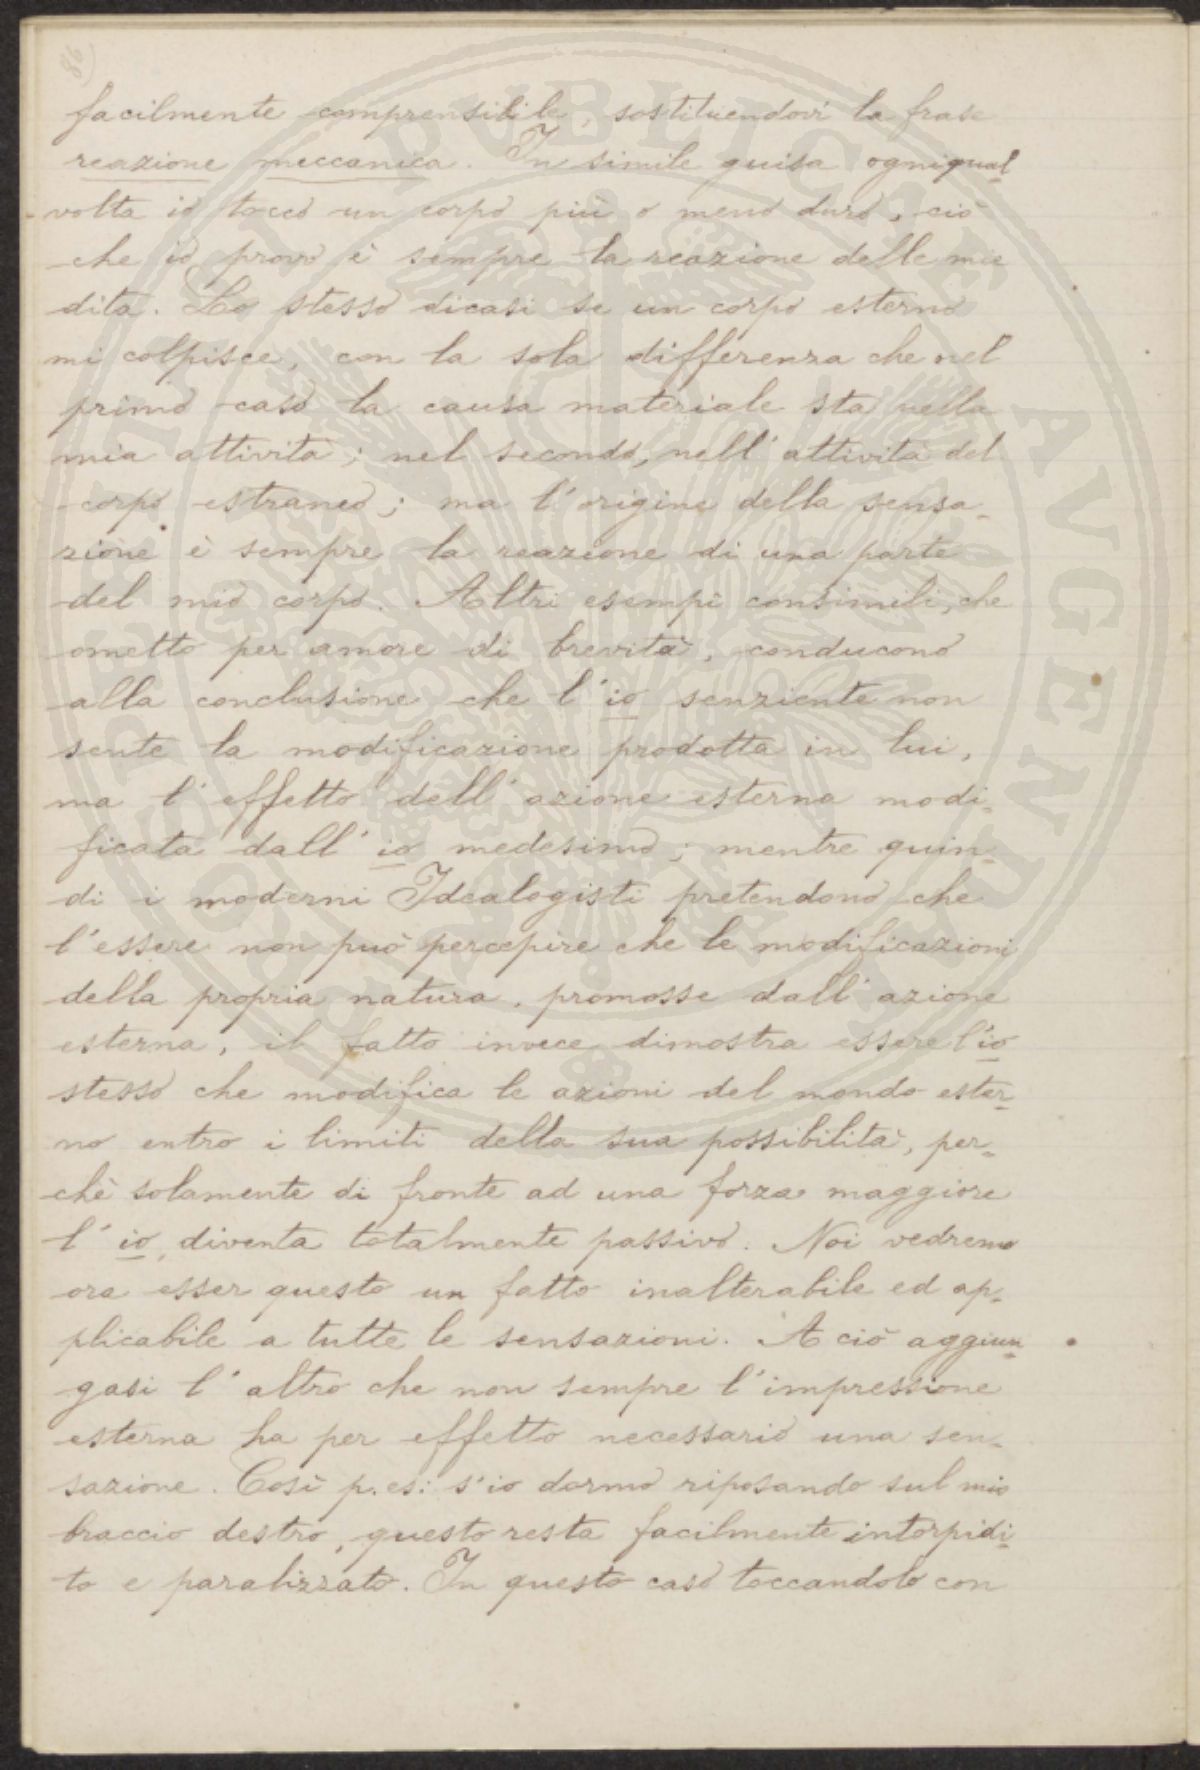 86)
facilmente comprensibile, sostituendovi la frase
reazione meccanica. In simile guisa ogniqual-
volta io tocco un corpo più o meno duro, ciò
che io provo è sempre la reazione delle mie
dita. Lo stesso dicasi se un corpo esterno
mi colpisce, con la sola differenza che nel
primo caso la causa materiale sta nella
mia attività; nel secondo, nell'attività del
corpo estraneo; ma l'origine della sensa-
zione è sempre la reazione di una parte
del mio corpo. Altri esempi consimili, che
ometto per amore di brevità, conducono
alla conclusione che l'io senziente non
sente la modificazione prodotta in lui,
ma l'effetto dell'azione esterna modi-
ficata dall'io medesimo; mentre quin-
di i moderni Idealogisti pretendono che
l'essere non può percepire che le modificazioni
della propria natura, promosse dall'azione
esterna, il fatto invece dimostra essere l'io
stesso che modifica le azioni del mondo ester-
no entro i limiti della sua possibilità, per-
chè solamente di fronte ad una forza maggiore
l'io diventa totalmente passivo. Noi vedremo
ora esser questo un fatto inalterabile ed ap-
plicabile a tutte le sensazioni. A ciò aggiun-
gasi l'altro che non sempre l'impressione
esterna ha per effetto necessario una sen-
sazione. Così p. es: s'io dormo riposando sul mio
braccio destro, questo resta facilmente intorpidi-
to e paralizzato. In questo caso toccandolo con